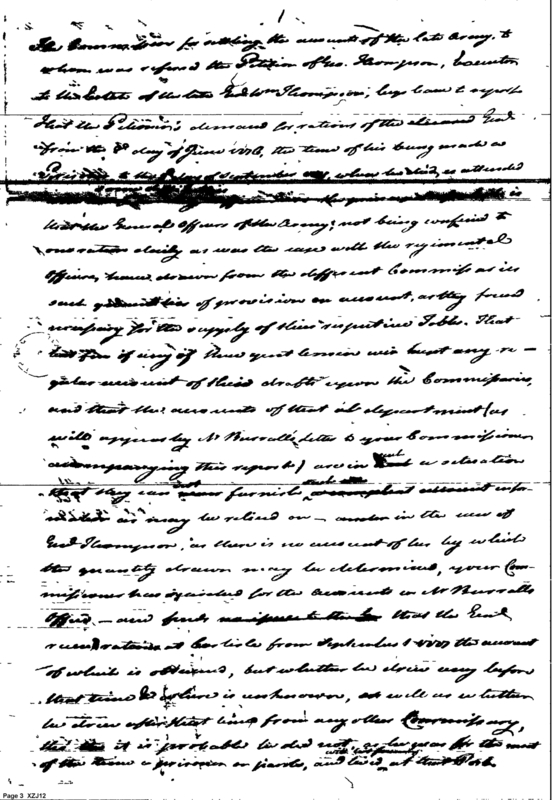 1
The Commissioner for settling the accounts of the late Army, to
whom was referred the Petition of Geo. Thompson, Executor
to the Estate of the late Genl Wm Thompson; begs leave to report
That the Petitioner's demand for rations of the deceased Genl
from the day of June 1776, the time of his being made a
Prisoner to the day of September when he died, is attended
is
that the General Officers of the Army; not being confined to
one ration daily as was the case with the regimental
Officers, have drawn from the different Commissaries
such quantities of provision on account, as they found
necessary for the supply of their respective Tables. That
but few if any of these gentlemen have kept any re-
gular account of their drafts upon the Commissaries,
and that the accounts of that department (as
will appear by Mr Burrall's letter to your Commissioner
accompanying this report) are in such a situation
that they can not furnish such
as may be relied on — in the case of
Genl Thompson, as there is no account of his by which
the quantity drawn may be determined, your Com-
missioner has inquired for the accounts in Mr Burralls
Office — and finds that the Genl
recd rations at Carlisle from September 1 1777 the account
of which is obtained, but whether he drew any before
that time is unknown, as well as whether
he drew after that time from any other Commissary,
it is probable he did not, as he was for the most
of the time a prisoner on parole, and lived at that Post
Page 3 XZJ12